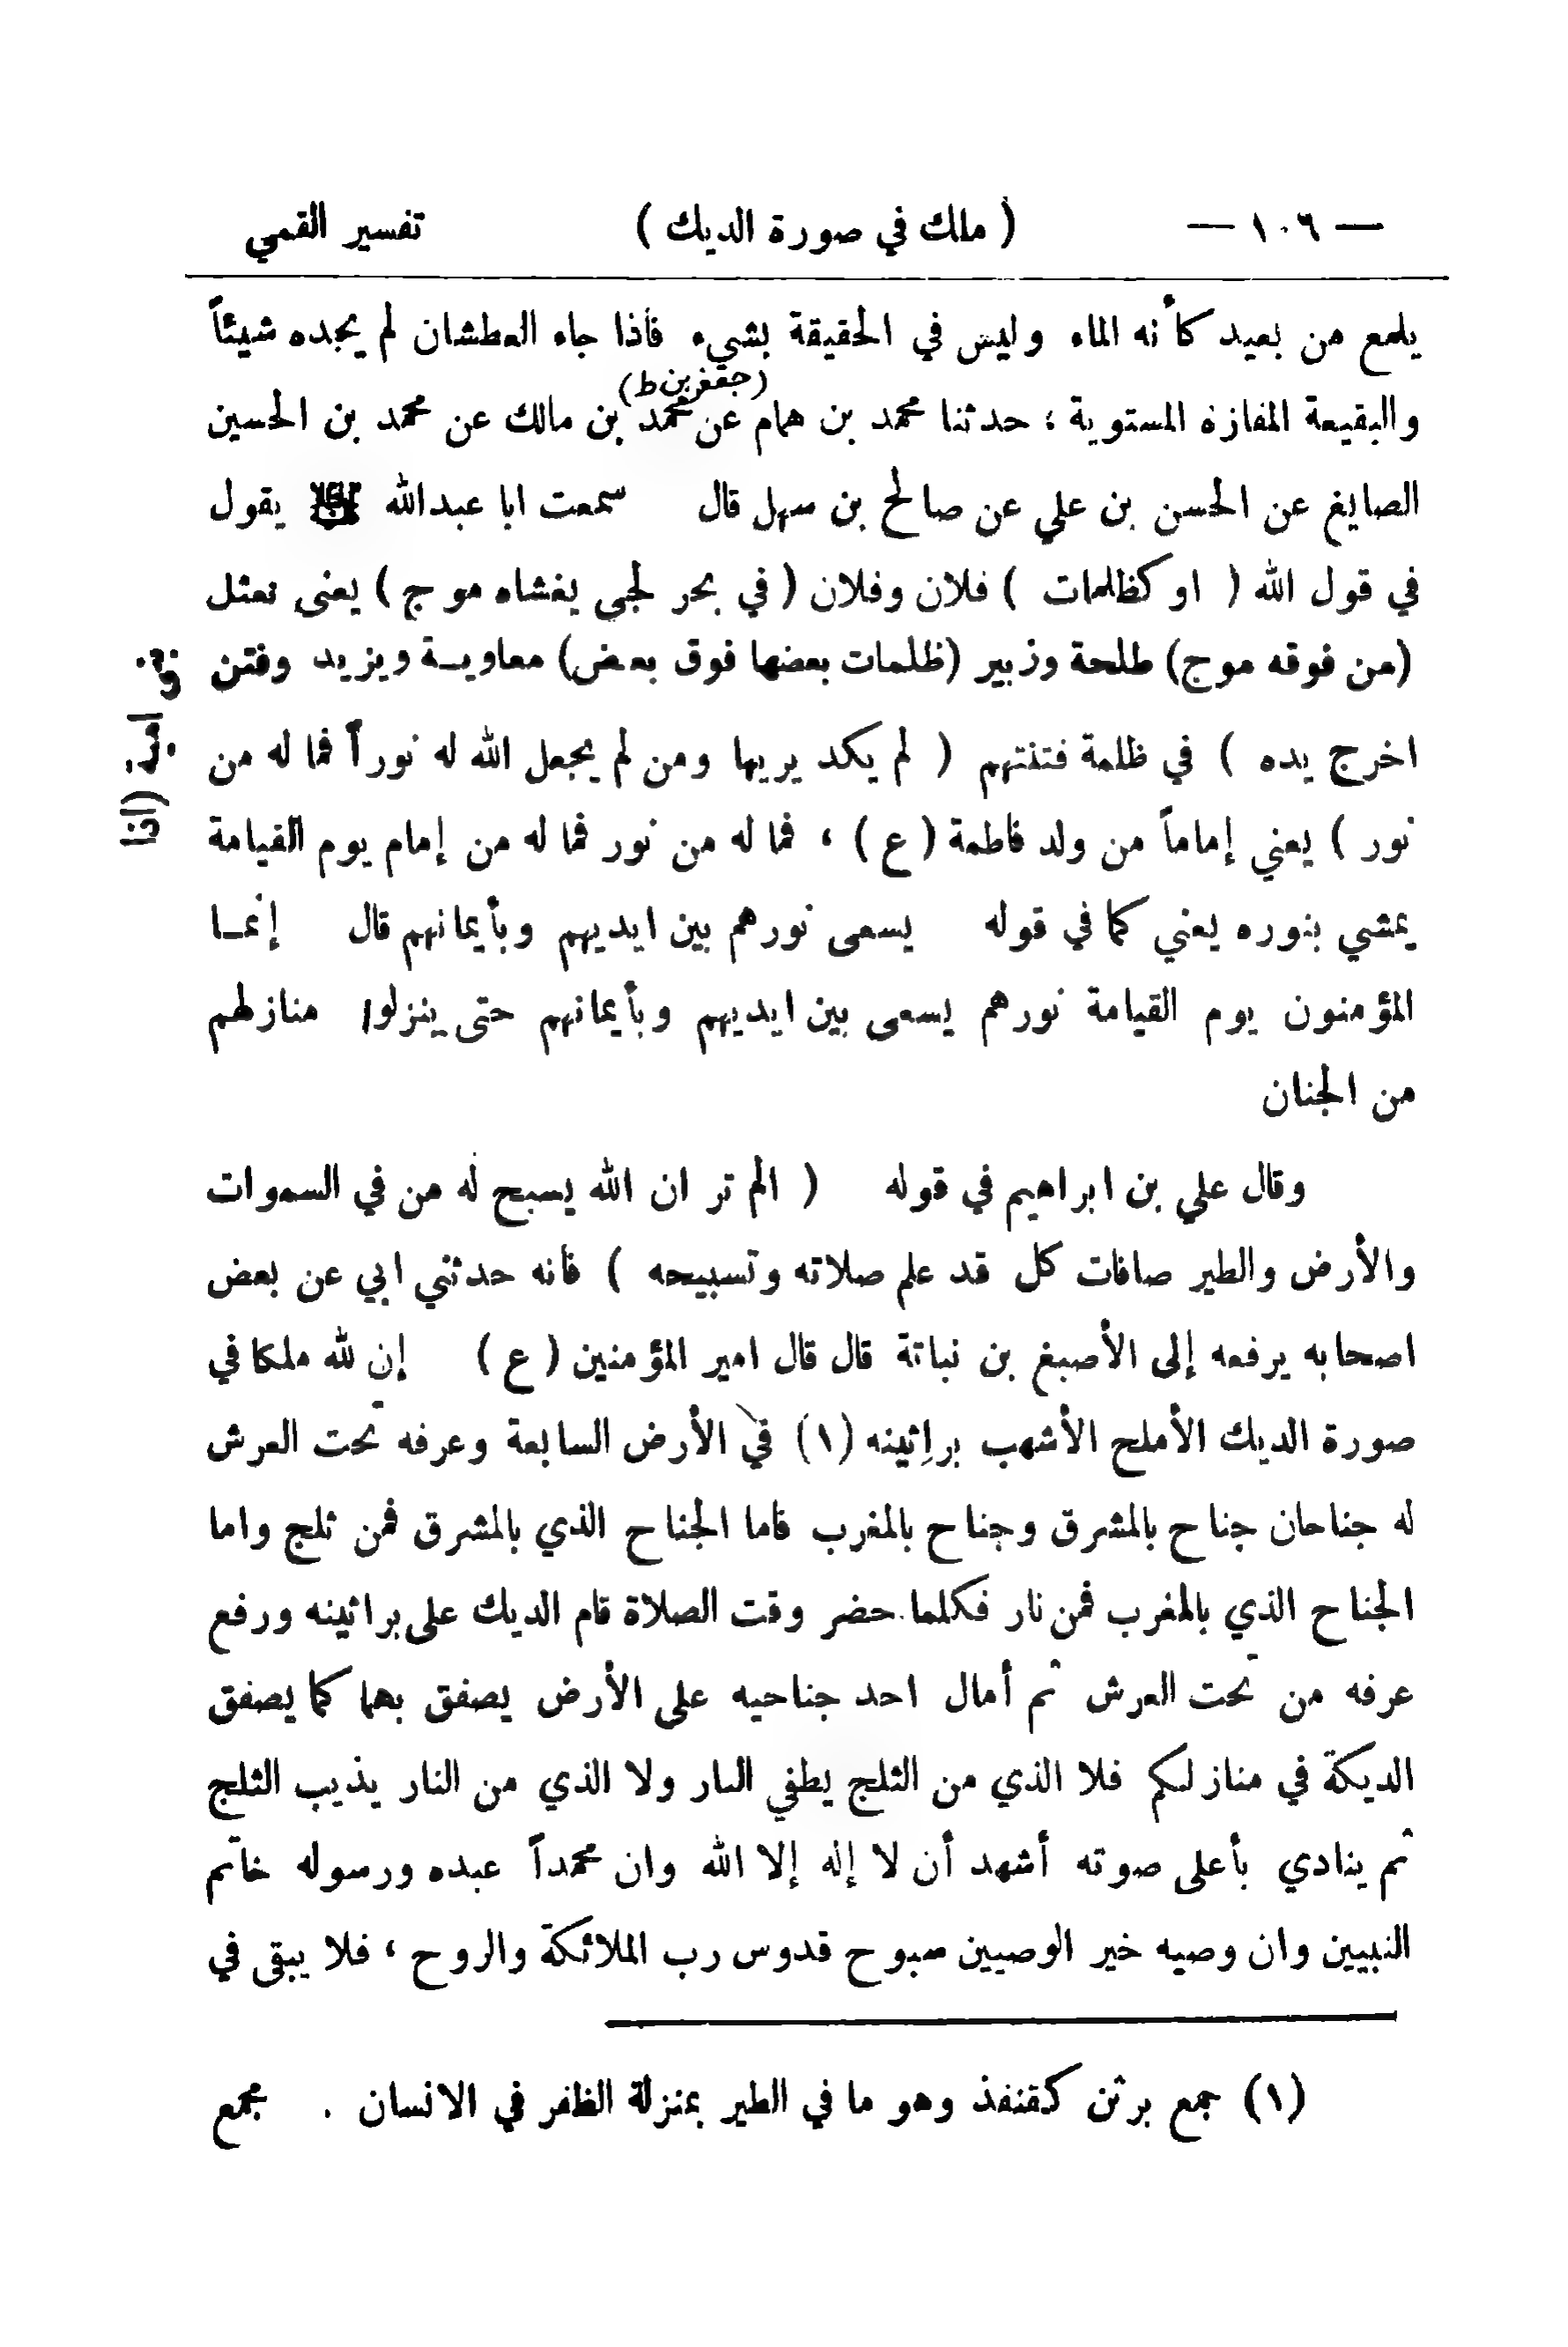 — ١٠٦ — ( ملك في صورة الديك ) تفسير القمي
يلمع من بعيد كأنه الماء وليس في الحقيقة بشيء فاذا جاء العطشان لم يجده شيئاً
(جعفر بن ط)
والبقيعة المفازة المستوية ؛ حدثنا محمد بن همام عن محمد بن مالك عن محمد بن الحسين
الصايغ عن الحسن بن علي عن صالح بن سهل قال سمعت ابا عبدالله يقول
في قول الله ( او كظلمات ) فلان وفلان ( في بحر لجى يغشاه موج ) يعنى نعثل
(من فوقه موج) طلحة وزبير (ظلمات بعضها فوق بعض) معاويـة ويزيد وفتن
بني امية (اذا
اخرج يده ) في ظلمة فتنتهم ( لم يكد يريها ومن لم يجعل الله له نوراً فما له من
نور ) يعني إماماً من ولد فاطمة ( ع ) ، فما له من نور فما له من إمام يوم القيامة
يمشي بنوره يعني كما في قوله يسعى نورهم بين ايديهم وبأيمانهم قال إنمـا
المؤمنون يوم القيامة نورهم يسعى بين ايديهم وبأيمانهم حتى ينزلوا منازلهم
من الجنان
وقال علي بن ابراهيم في قوله ( الم تر ان الله يسبح له من في السموات
والأرض والطير صافات كل قد علم صلاته وتسبيحه ) فانه حدثني ابي عن بعض
اصحابه يرفعه إلى الأصبغ بن نباتة قال قال امير المؤمنين ( ع ) إن لله ملكا في
صورة الديك الأملح الأشهب براثينه (١) في الأرض السابعة وعرفه تحت العرش
له جناحان جناح بالمشرق وجناح بالمغرب فاما الجناح الذي بالمشرق فمن ثلج واما
الجناح الذي بالمغرب فمن نار فكلما حضر وقت الصلاة قام الديك على براثينه ورفع
عرفه من تحت العرش ثم أمال احد جناحيه على الأرض يصفق بهما كما يصفق
الديكة في منازلكم فلا الذي من الثلج يطفي النار ولا الذي من النار يذيب الثلج
ثم ينادي بأعلى صوته أشهد أن لا إله إلا الله وان محمداً عبده ورسوله خاتم
النبيين وان وصيه خير الوصيين سبوح قدوس رب الملائكة والروح ، فلا يبقى في
(١) جمع برثن كقنفذ وهو ما في الطير بمنزلة الظفر في الانسان . مجمع